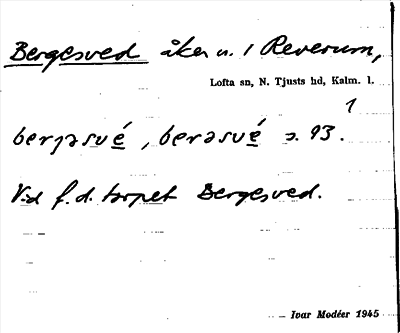 Bergesved åker u. 1 Reverum,
Lofta sn, N. Tjusts hd, Kalm. l.
1
berɟəsvé̱, berəsvé̱ s. 93.
Vid f.d. torpet Bergesved.
Ivar Modéer 1945